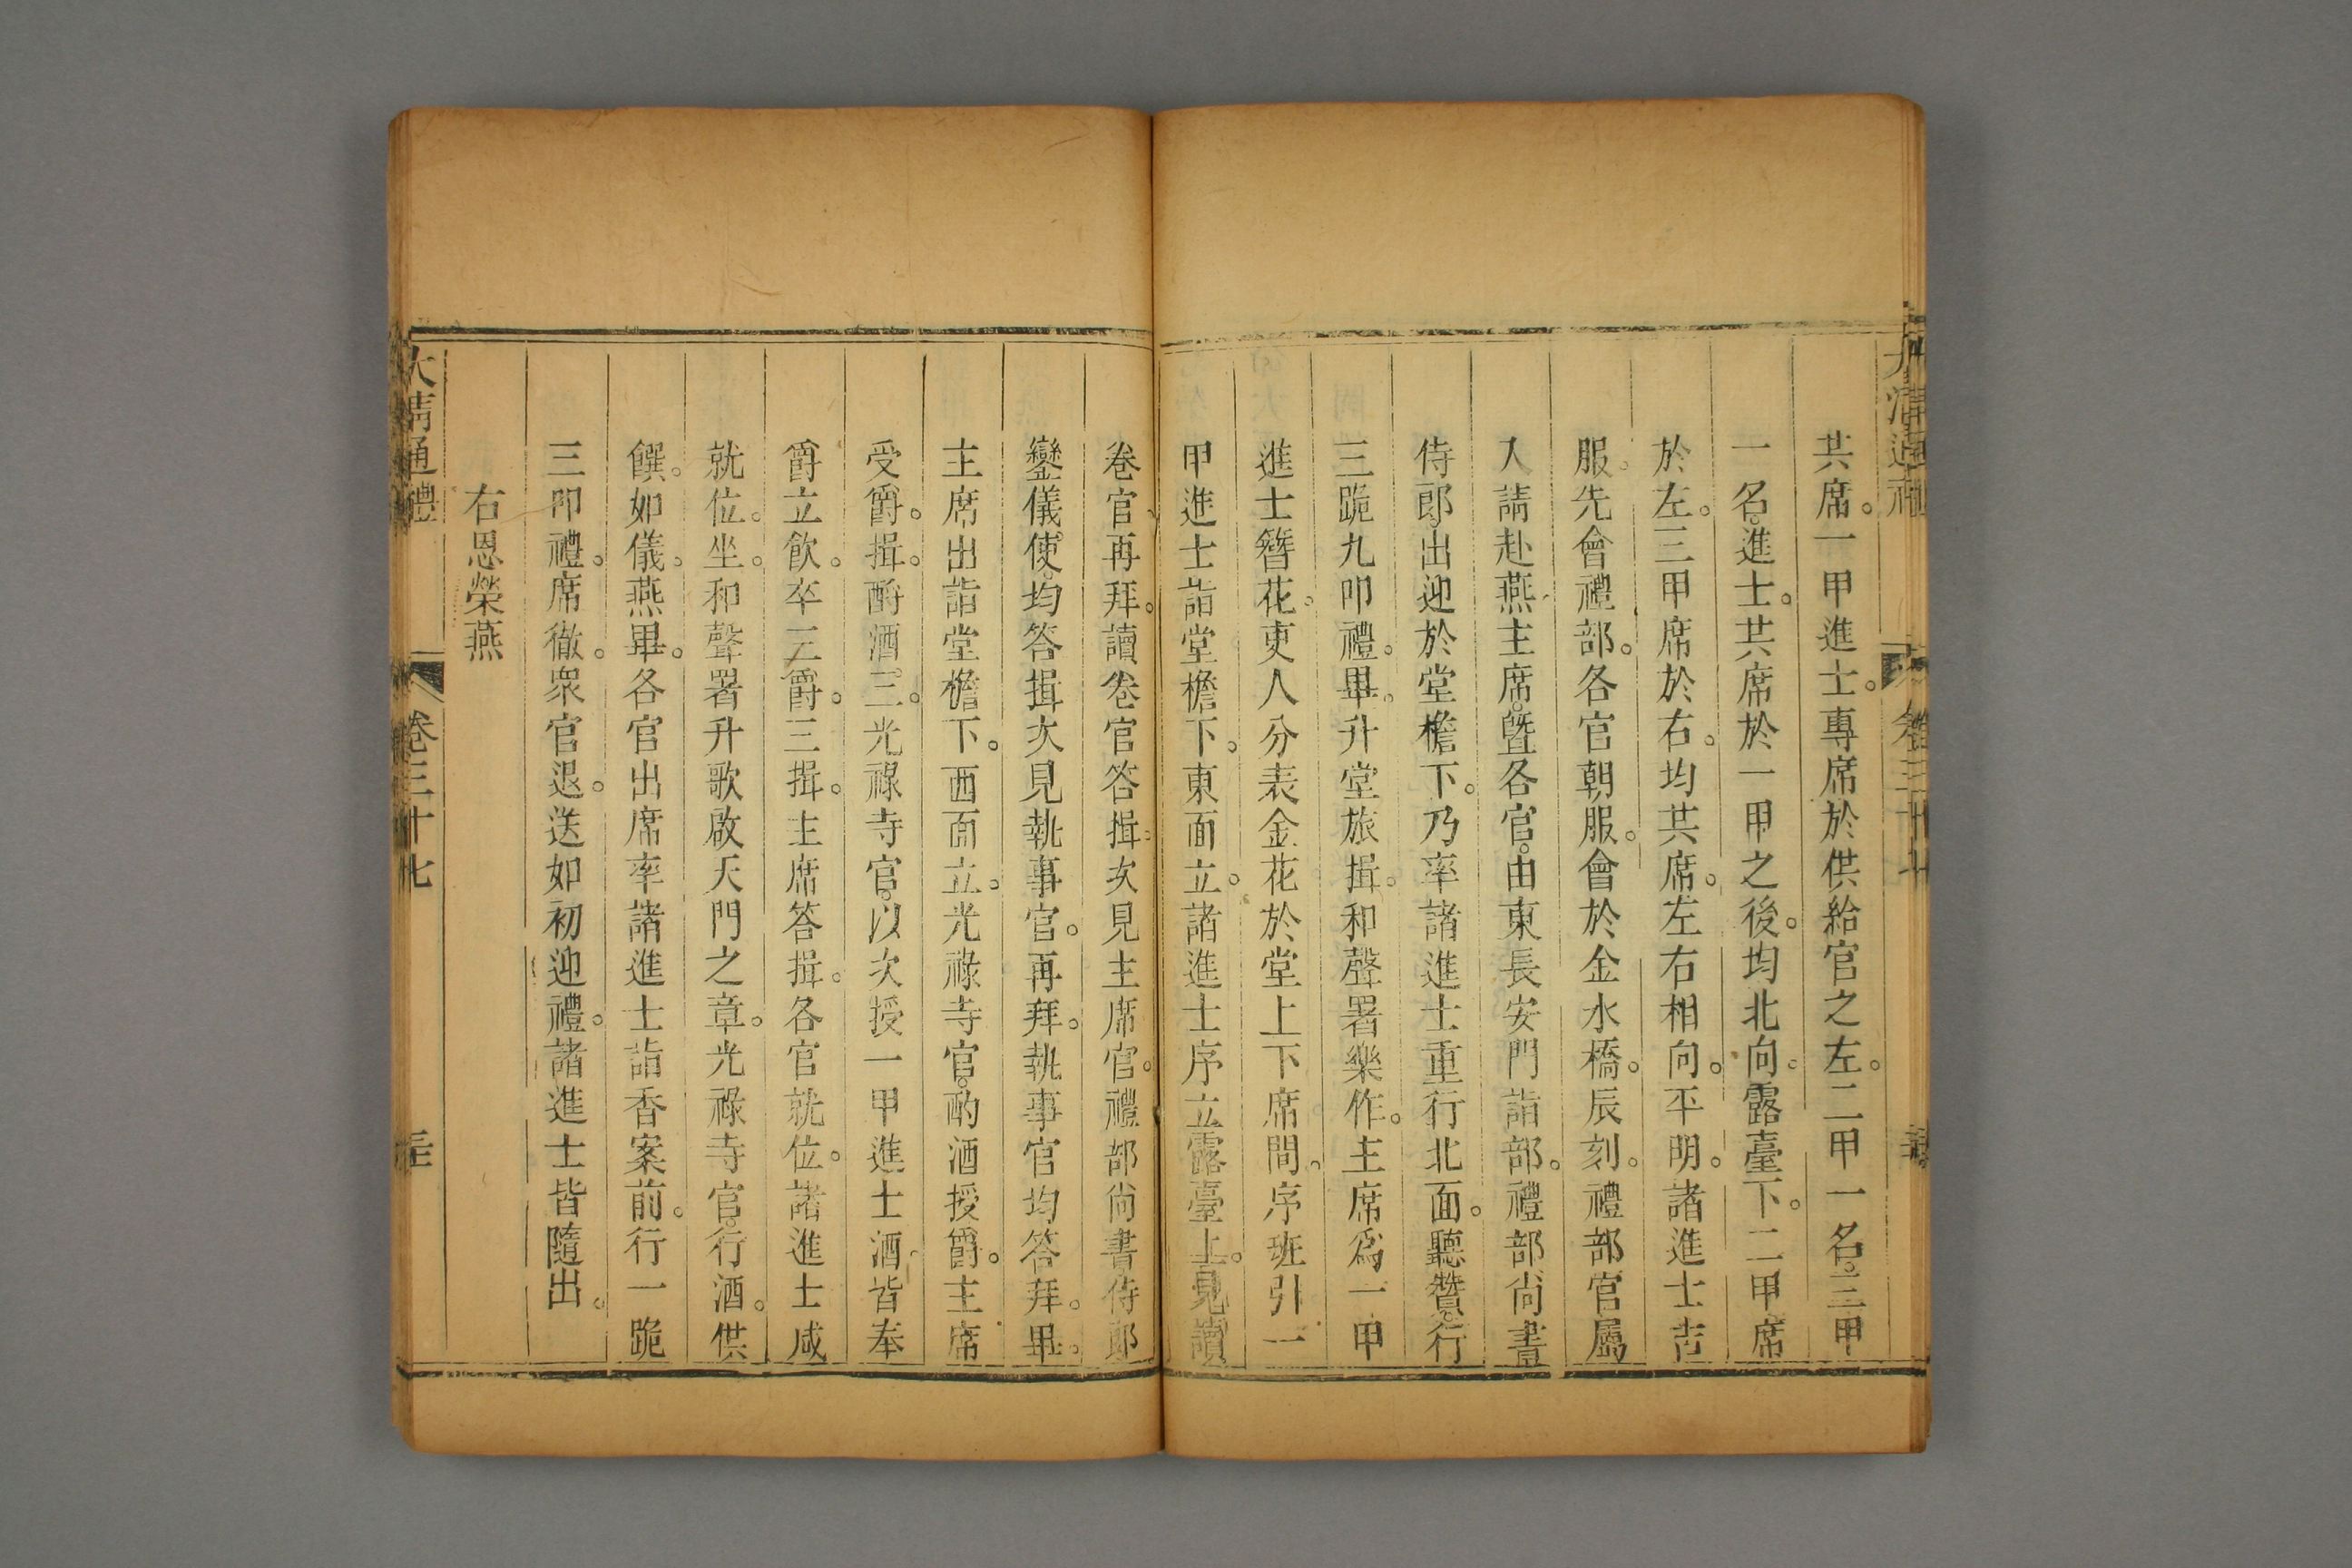 大清通禮 卷三十七
共席。一甲進士。專席於供給官之左。二甲一名。三甲
一名。進士。共席於一甲之後。均北向露臺下。二甲席
於左。三甲席於右。均共席。左右相向。平明。諸進士吉
服。先會禮部。各官朝服。會於金水橋。辰刻。禮部官屬
入請赴燕。主席。曁各官。由東長安門詣部。禮部尚書
侍郎。出迎於堂檐下。乃率諸進士重行北面。聽贊。行
三跪九叩禮。畢。升堂旅揖。和聲署樂作。主席爲一甲
進士簪花。吏人分表金花於堂上下席間。序班引一
甲進士詣堂檐下。東面立。諸進士序立露臺上。見讀
卷官。再拜。讀卷官答揖。次見主席官。禮部尚書侍郎
鑾儀使。均答揖。次見執事官。再拜。執事官均答拜。畢。
主席出詣堂檐下。西面立。光祿寺官。酌酒授爵。主席
受爵。揖。酹酒。三。光祿寺官。以次授一甲進士酒。皆奉
爵立飲。卒三爵。三揖。主席答揖。各官就位。諸進士咸
就位。坐。和聲署升歌啟天門之章。光祿寺官。行酒。供
饌。如儀。燕畢。各官出席率諸進士詣香案前。行一跪
三叩禮。席徹。衆官退。送如初迎禮。諸進士皆隨出。
右恩榮燕
大清通禮 卷三十七